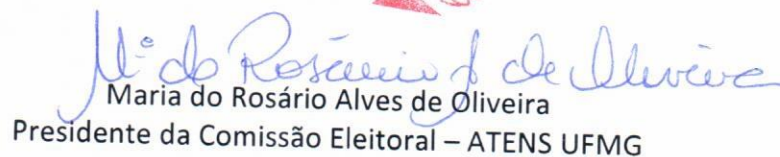 Mª do Rosário A de Oliveira
Maria do Rosário Alves de Oliveira
Presidente da Comissão Eleitoral – ATENS UFMG